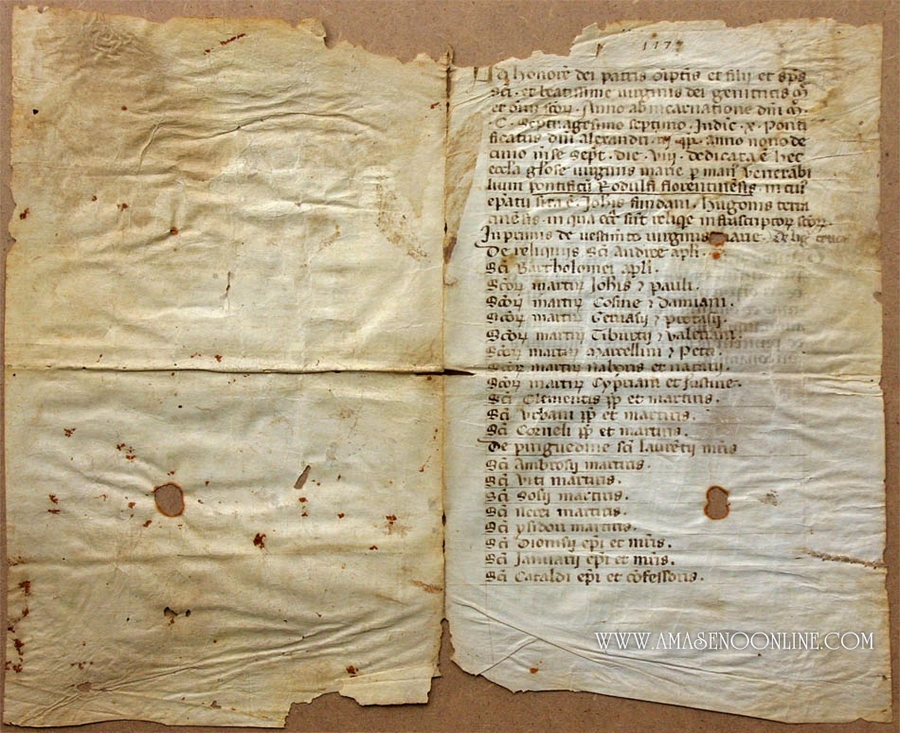 117
Ad honore dei patris oiptis et filii et sps
sci · et beatissime virginis dei genitricis
et oium scoȝ · Anno ab incarnatione dni
· C · septuagesimo septimo · Indic · x · Ponti
ficatus dni alexandri · iij · pp · anno nono de
cimo mse sept · die · viij · dedicata e hec
ecclia gliose virginis marie p man venerabi
lium pontificu Rodulfi florentinensis in cui
epatu sita e · Johis fundani · Hugonis terra
cinensis · in qua ecc sut reliqe infrascriptoȝ scoȝ ·
In primis de vestimto virginis marie · De lig cruci
De reliquiis sci andree apli ·
Sci Bartholomei apli ·
Scoȝ martiȝ Johis ⁊ Pauli ·
Scoȝ martiȝ Cosme ⁊ Damiani ·
Scoȝ martiȝ Gervasij ⁊ Protasij ·
Scoȝ martiȝ Tiburtij ⁊ valeriani ·
Scoȝ martiȝ Marcellini ⁊ Petri ·
Scoȝ martiȝ naboris et nazarij ·
Scoȝ martiȝ Cypriani et Justine ·
Sci Clementis pp et martiris ·
Sci Urbani pp et martiris ·
Sci Corneli pp et martiris ·
De pinguedine sci lauretij mris
Sci Ambrosij martiris ·
Sci Viti martiris ·
Sci Sosij martiris ·
Sci nerei martiris ·
Sci ysidori martiris ·
Sci Dionisij epi et mris ·
Sci Januarij epi et mris ·
Sci Cataldi epi et cofessoris ·
WWW.AMASENOONLINE.COM